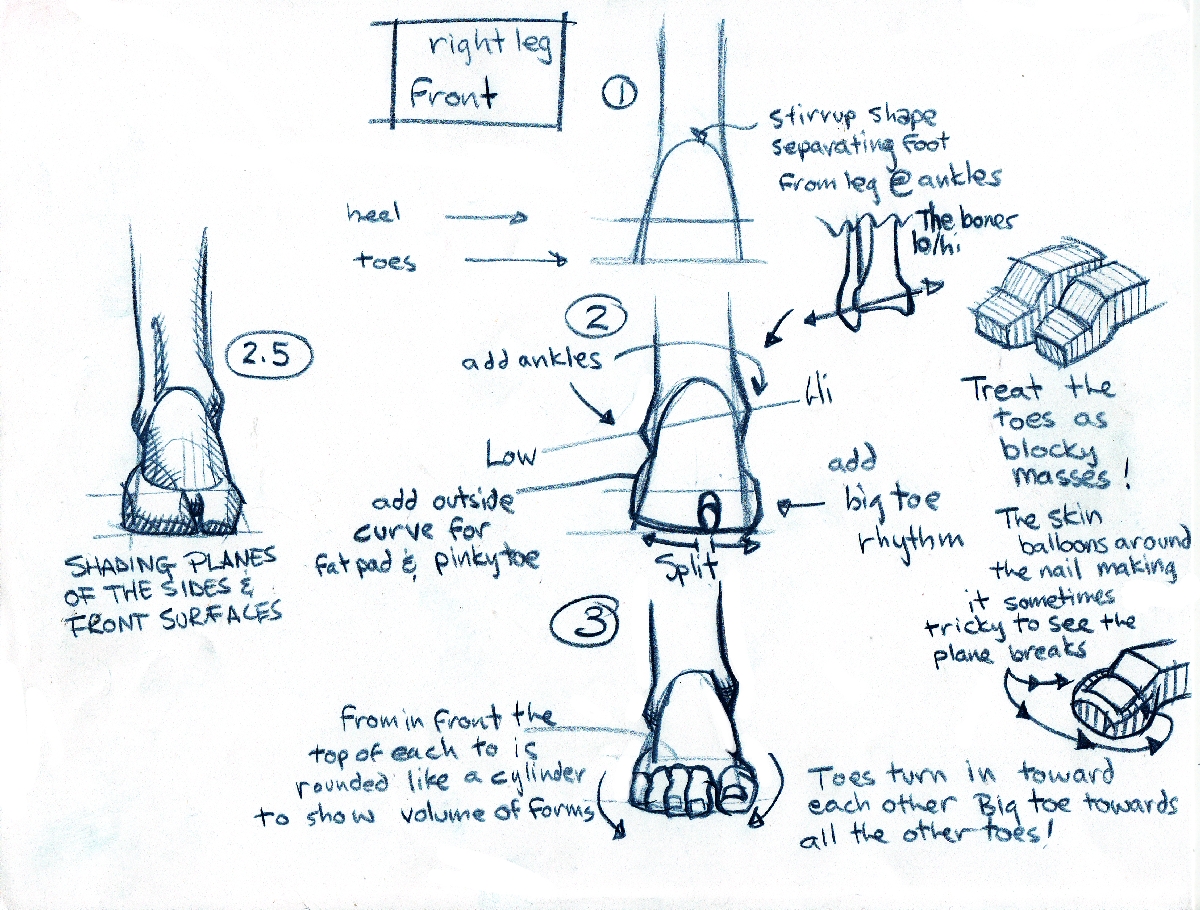 right leg
Front
1
stirrup shape
separating foot
from leg @ ankles
heel
toes
The bones
lo/hi
2
add ankles
Hi
Low
add outside
curve for
fat pad & pinky toe
add
big toe
rhythm
Split
2.5
SHADING PLANES
OF THE SIDES &
FRONT SURFACES
Treat the
toes as
blocky
masses!
The skin
balloons around
the nail making
it sometimes
tricky to see the
plane breaks
3
From in front the
top of each to is
rounded like a cylinder
to show volume of forms
Toes turn in toward
each other Big toe towards
all the other toes!